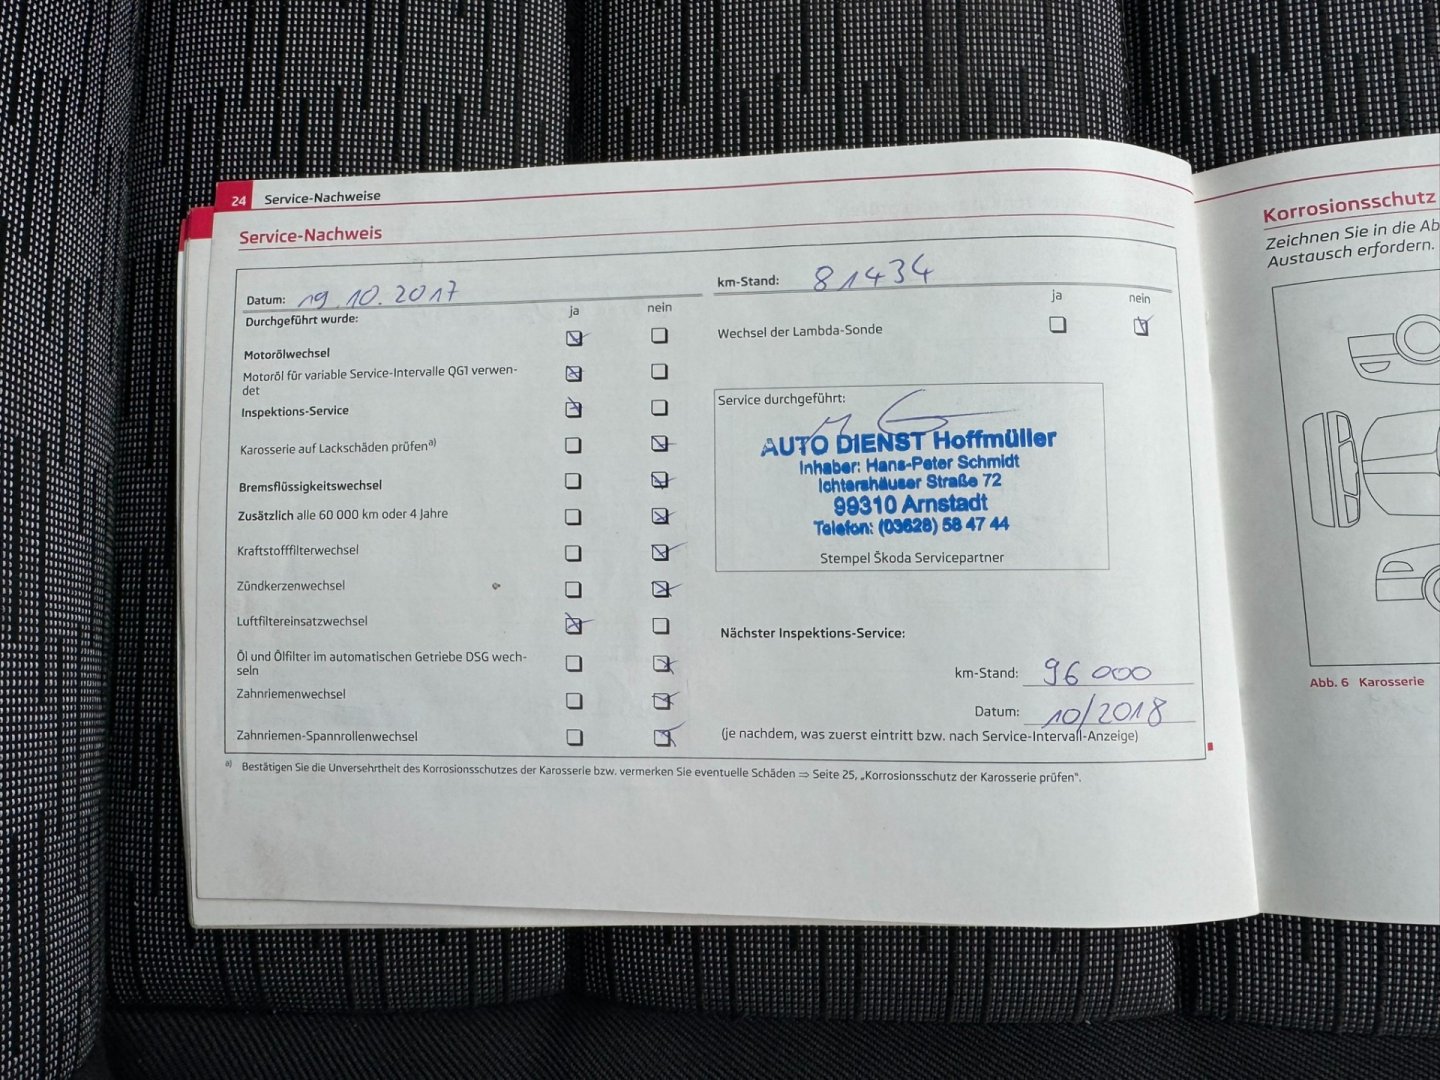 24 Service-Nachweise
Service-Nachweis
Datum: 19.10.2017
km-Stand: 81434
Durchgeführt wurde:
ja nein
ja nein
Motorölwechsel
Wechsel der Lambda-Sonde
Motoröl für variable Service-Intervalle QG1 verwen-
det
Inspektions-Service
Karosserie auf Lackschäden prüfen a)
Bremsflüssigkeitswechsel
Zusätzlich alle 60 000 km oder 4 Jahre
Kraftstofffilterwechsel
Zündkerzenwechsel
Luftfiltereinsatzwechsel
Öl und Ölfilter im automatischen Getriebe DSG wech-
seln
Zahnriemenwechsel
Zahnriemen-Spannrollenwechsel
Service durchgeführt:
AUTO DIENST Hoffmüller
Inhaber: Hans-Peter Schmidt
Ichtershäuser Straße 72
99310 Arnstadt
Telefon: (03628) 58 47 44
Stempel Škoda Servicepartner
Nächster Inspektions-Service:
km-Stand: 96 000
Datum: 10/2018
(je nachdem, was zuerst eintritt bzw. nach Service-Intervall-Anzeige)
a) Bestätigen Sie die Unversehrtheit des Korrosionsschutzes der Karosserie bzw. vermerken Sie eventuelle Schäden ⇒ Seite 25, „Korrosionsschutz der Karosserie prüfen“.
Korrosionsschutz
Zeichnen Sie in die Ab
Austausch erfordern.
Abb. 6 Karosserie